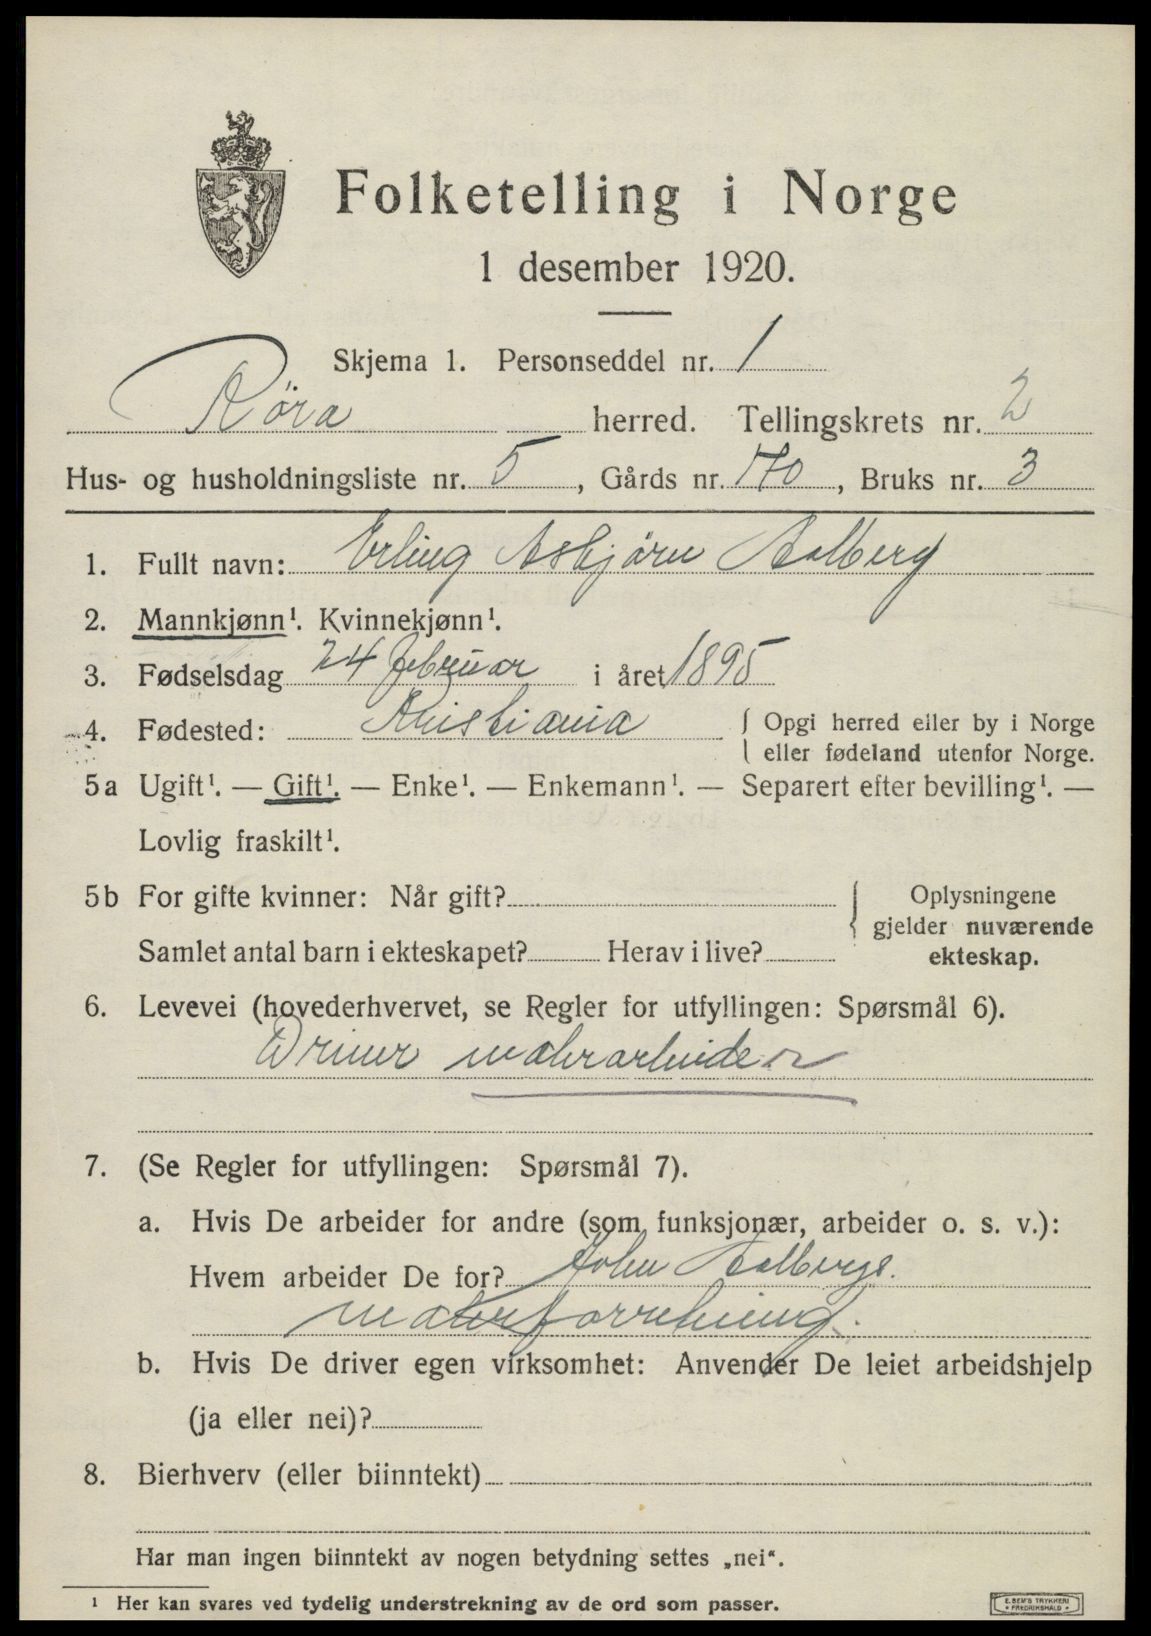 Folketelling i Norge
1 desember 1920.
Skjema 1. Personseddel nr. 1
Røra herred. Tellingskrets nr. 2
Hus- og husholdningsliste nr. 5, Gårds nr. 170, Bruks nr. 3
1. Fullt navn: Erling Asbjørn Aalberg
2. Mannkjønn¹. Kvinnekjønn¹.
3. Fødselsdag 24 februar i året 1895
4. Fødested: Kristiania { Opgi herred eller by i Norge
eller fødeland utenfor Norge.
5a Ugift¹. — Gift¹. — Enke¹. — Enkemann¹. — Separert efter bevilling¹. —
Lovlig fraskilt¹.
5b For gifte kvinner: Når gift? { Oplysningene
gjelder nuværende
Samlet antal barn i ekteskapet? Herav i live? ekteskap.
6. Levevei (hovederhvervet, se Regler for utfyllingen: Spørsmål 6).
malerarbeider
7. (Se Regler for utfyllingen: Spørsmål 7).
a. Hvis De arbeider for andre (som funksjonær, arbeider o. s. v.):
Hvem arbeider De for? John Aalbergs.
malerforretning.
b. Hvis De driver egen virksomhet: Anvender De leiet arbeidshjelp
(ja eller nei)?
8. Bierhverv (eller biinntekt)
Har man ingen biinntekt av nogen betydning settes „nei“.
¹ Her kan svares ved tydelig understrekning av de ord som passer.
E. SEM'S TRYKKERI
• FREDRIKSHALD •